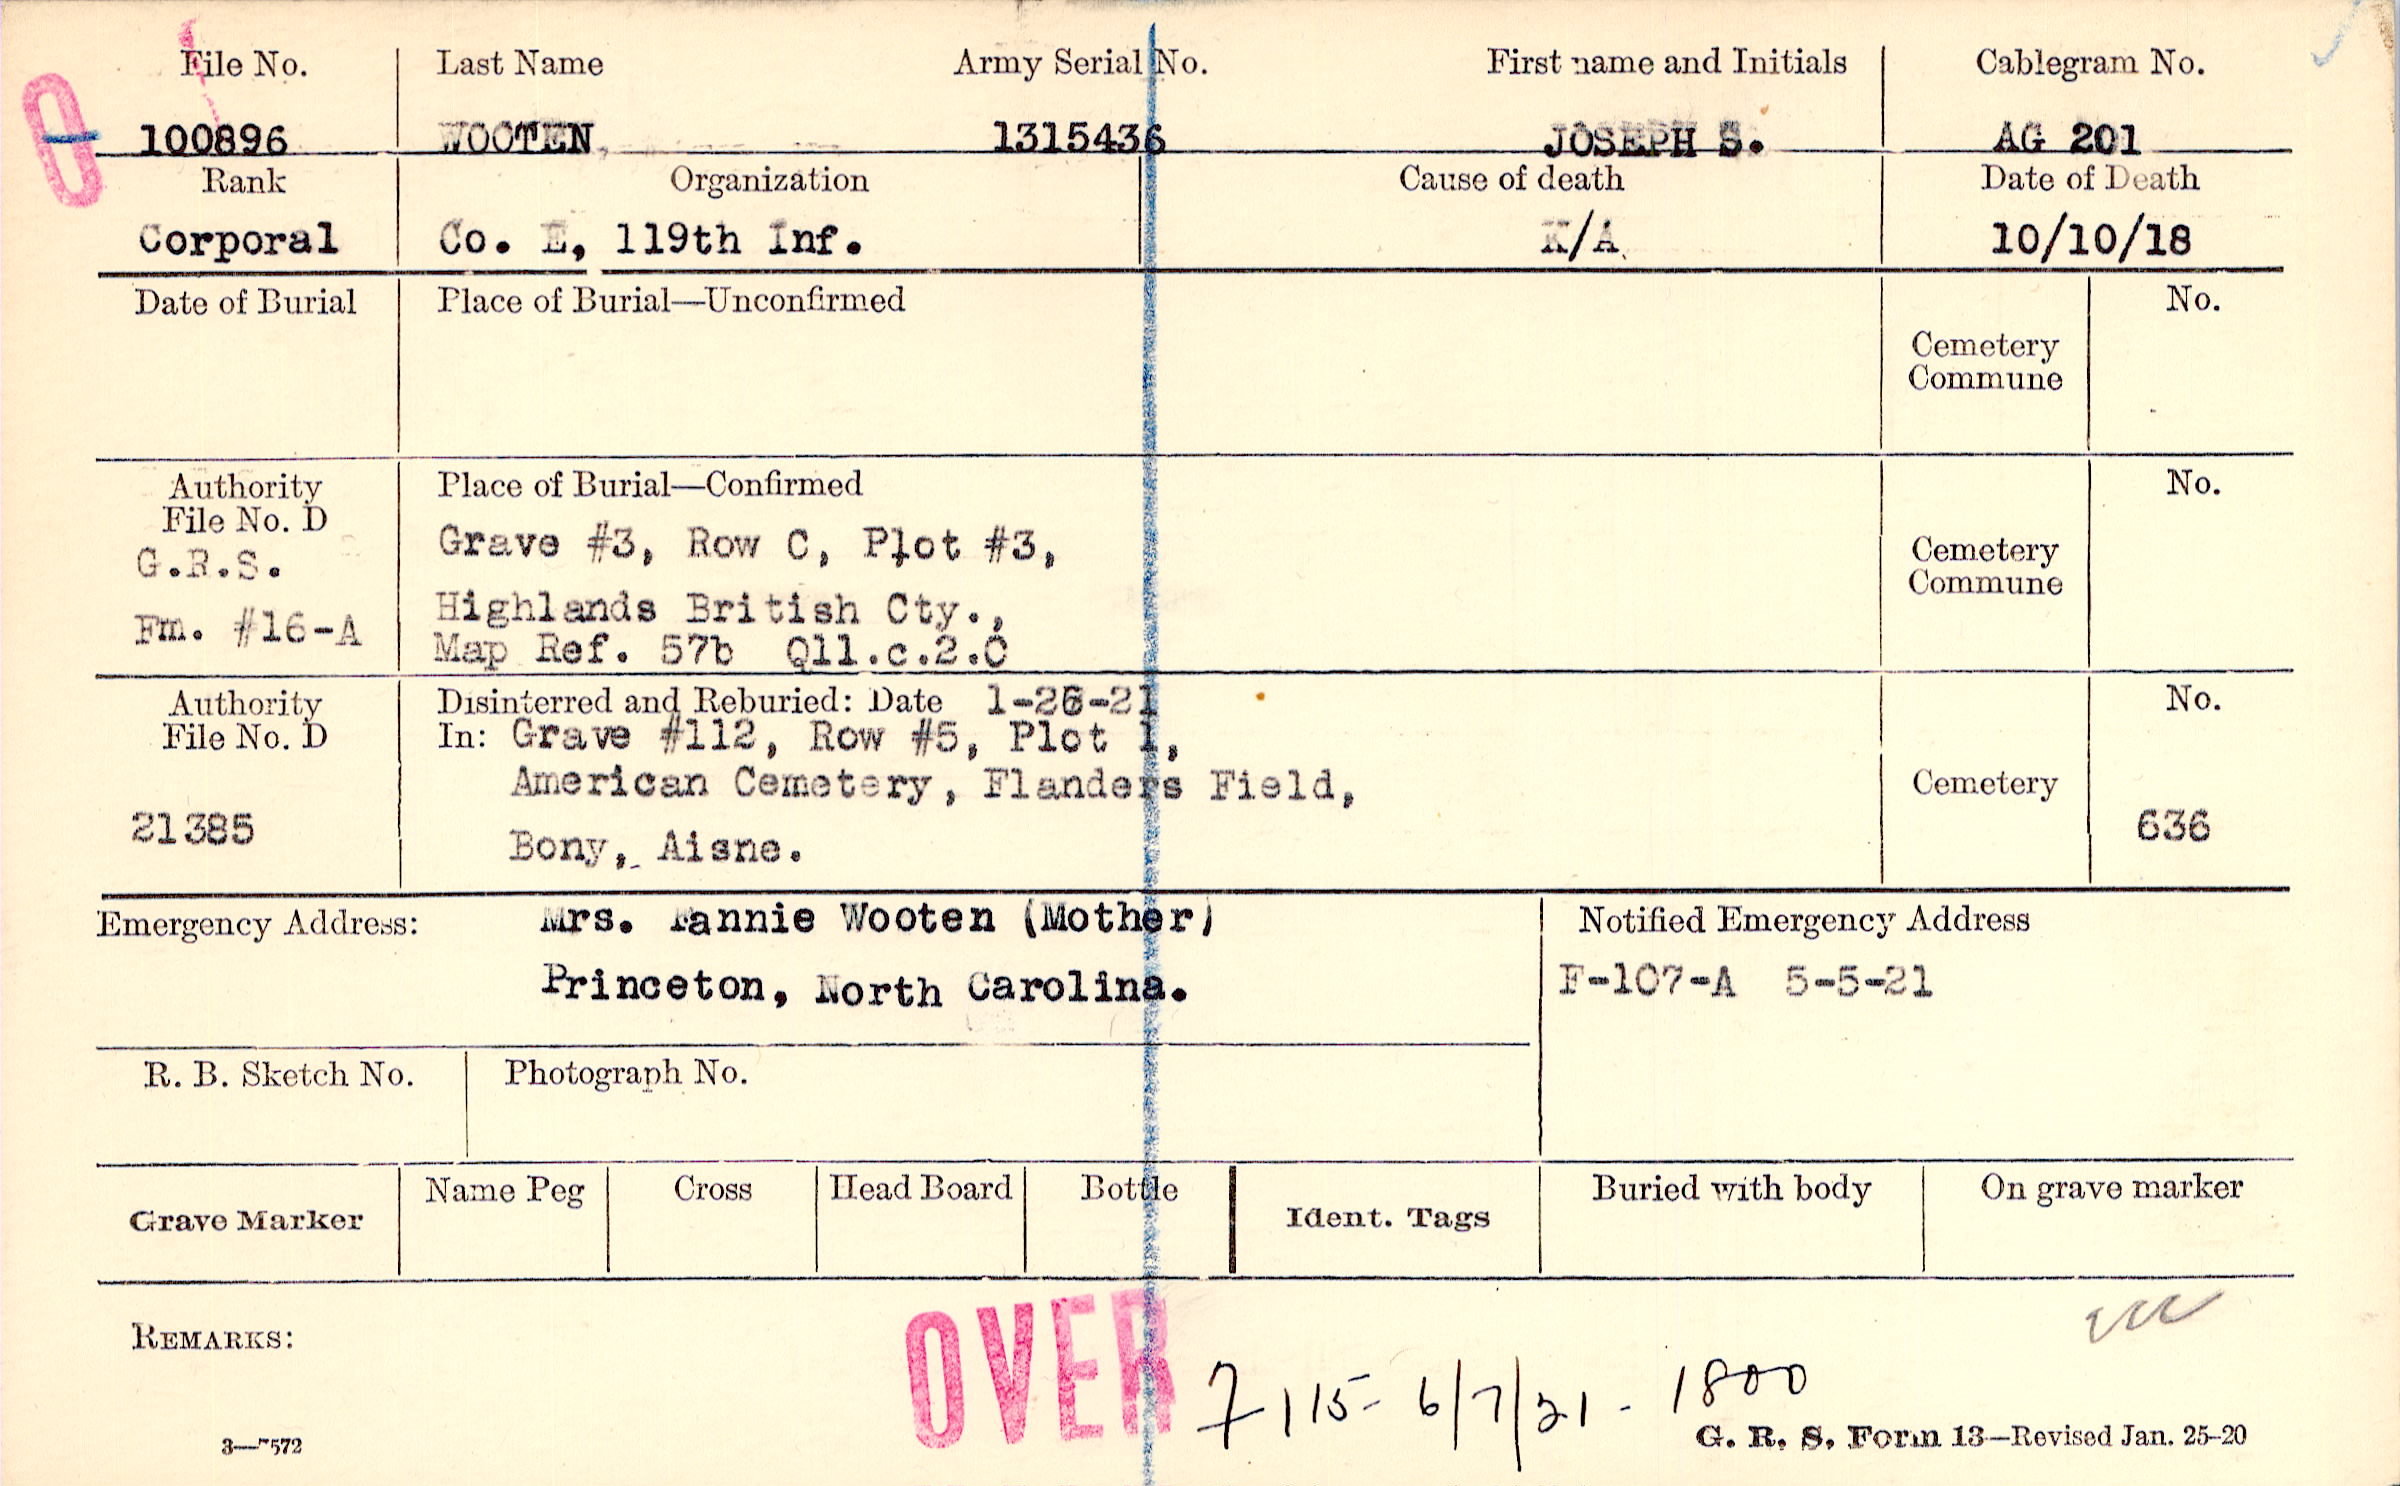 File No. Last Name Army Serial No. First name and Initials Cablegram No.
100896 WOOTEN, 1315436 JOSEPH S. AG 201
Rank Organization Cause of death Date of Death
Corporal Co. E, 119th Inf. K/A 10/10/18
Date of Burial Place of Burial—Unconfirmed No.
Cemetery
Commune
Authority Place of Burial—Confirmed No.
File No. D
G.R.S. Grave #3, Row C, Plot #3,
Cemetery
Commune
Fm. #16-A Highlands British Cty.,
Map Ref. 57b Q11.c.2.0
Authority Disinterred and Reburied: Date 1-26-21 No.
File No. D In: Grave #112, Row #5, Plot 1,
American Cemetery, Flanders Field, Cemetery
21385 Bony, Aisne. 636
Emergency Address: Mrs. Fannie Wooten (Mother) Notified Emergency Address
Princeton, North Carolina. F-107-A 5-5-21
R. B. Sketch No. Photograph No.
Grave Marker Name Peg Cross Head Board Bottle Ident. Tags Buried with body On grave marker
REMARKS:
OVER
7115- 6/7/21 - 1800
3—7572 G. R. S. Form 13—Revised Jan. 25-20